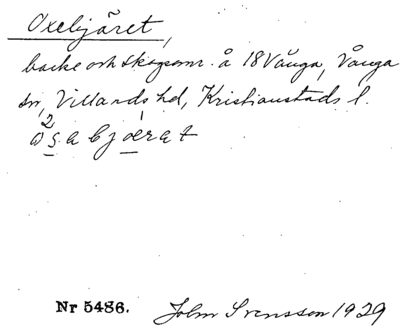 Oxebjäret,
backe och skogsomr. å 18 Vånga, Vånga
sn, Villands hd, Kristianstads l.
Nr 5486. John Svensson 1929